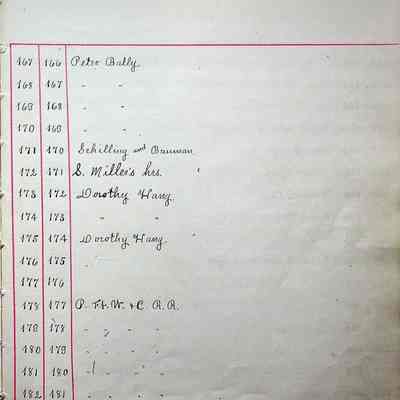 167 166 Petro Bally
168 167 " "
169 168 " "
170 169 " "
171 170 Schilling and Bauman
172 171 S. Miller's hrs.
173 172 Dorothy Harry
174 173 " "
175 174 Dorothy Harry
176 175 "
177 176
178 177 P. Ft. W. & C. R. R.
179 178 " " " "
180 179 " " " "
181 180 " " " "
182 181 " " " "